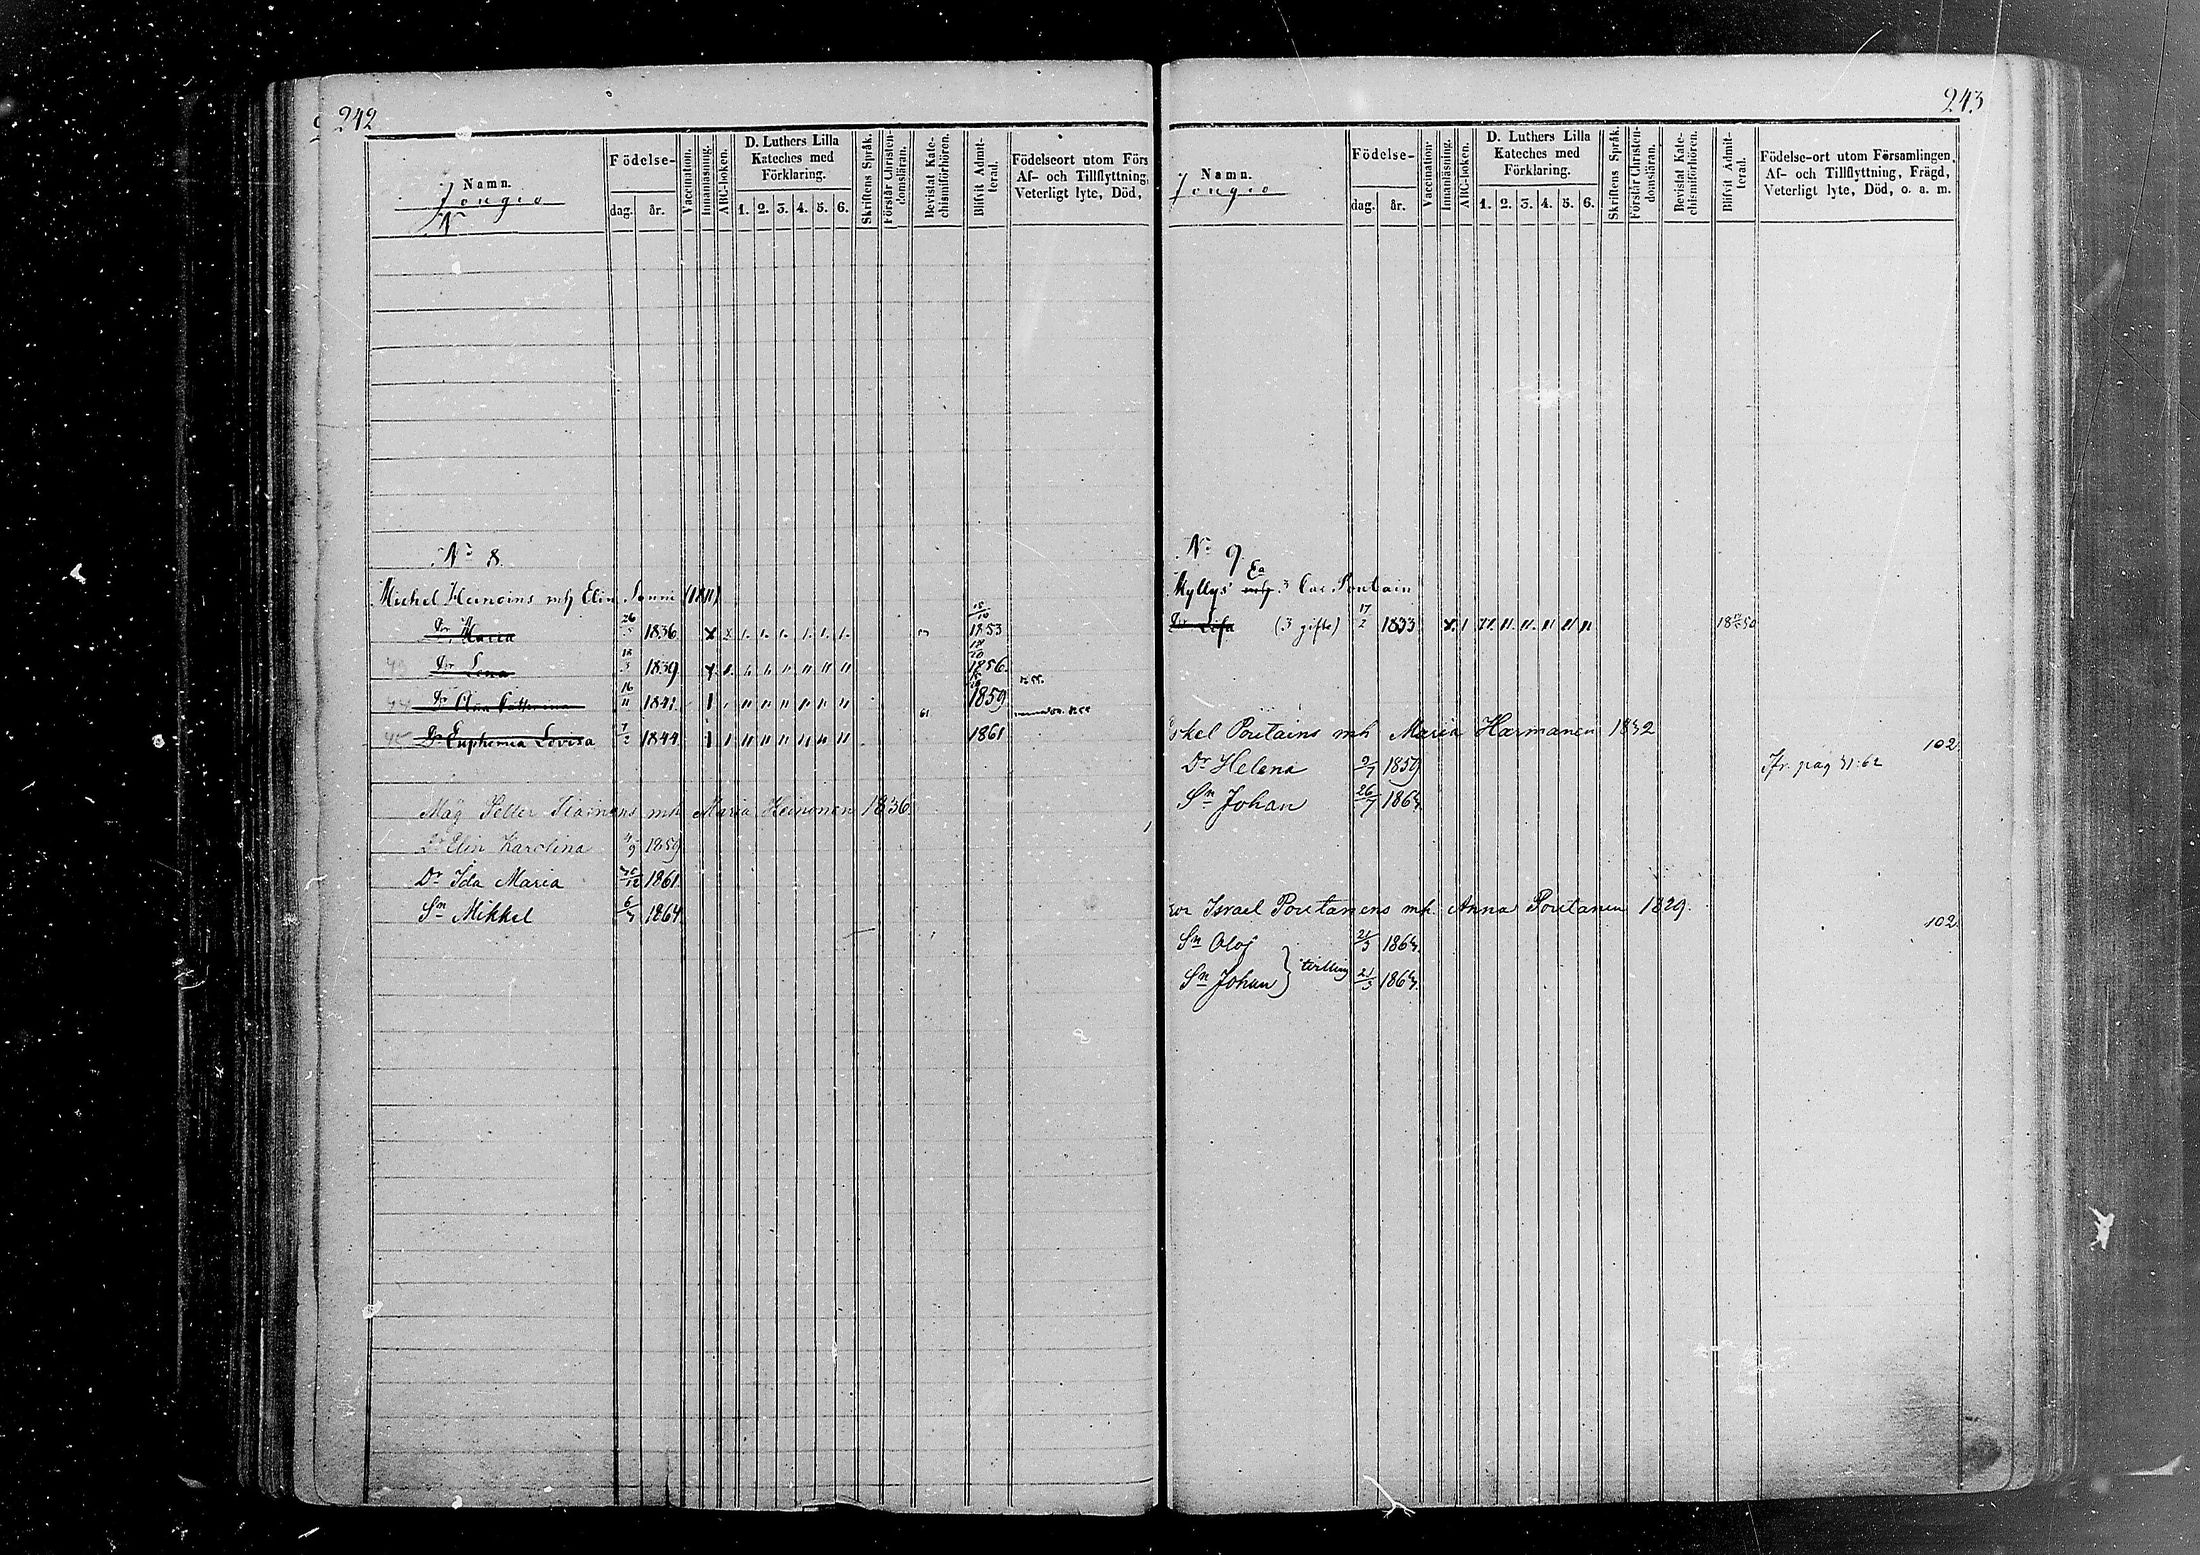 242
Namn.
Jongio
Födelse-
dag. år.
Vaccination.
Innanläsning.
ABC-boken.
D. Luthers Lilla Kateches med Förklaring.
1. 2. 3. 4. 5. 6.
Skriftens Språk.
Förstår Christendomsläran.
Bevistat Katechismiförhören.
Blifvit Admitterad.
Födelseort utom Förs
Af- och Tillflyttning,
Veterligt lyte, Död,
No 8.
Michel Heinoins mh Elin (1811)
Dr Maria 26/5 1836 15/10 1853
Dr Lena 18/3 1839 1856
Dr Catharina 16/11 1841 1859
Dr Euphemia Lovisa 7/2 1844 61 1861
Måg Petter Tiainens mh Maria Heinonen 1836
Dr Elin Karolina 4/9 1859
Dr Ida Maria 1861
Sn Mikkel 6/7 1864
243
Namn.
Jongio
Födelse-
dag. år.
Vaccination.
Innanläsning.
ABC-boken.
D. Luthers Lilla Kateches med Förklaring.
1. 2. 3. 4. 5. 6.
Skriftens Språk.
Förstår Christendomsläran.
Bevistat Katechismiförhören.
Blifvit Admitterad.
Födelse-ort utom Församlingen,
Af- och Tillflyttning, Frägd,
Veterligt lyte, Död, o. a. m.
No 9.
Kyllys Ea Poutain
Dr Lisa (3 gifte) 17/2 1833
Poutains mh Maria Harmanen 1832
102
Dr Helena 2/7 1859 Jfr. pag 31:62
Sn Johan 26/7 1864
Israel Poutanens mh. Anna Poutanen 1829.
102
Sn Olof 21/3 1864
Sn Johan } tvilling 21/3 1864